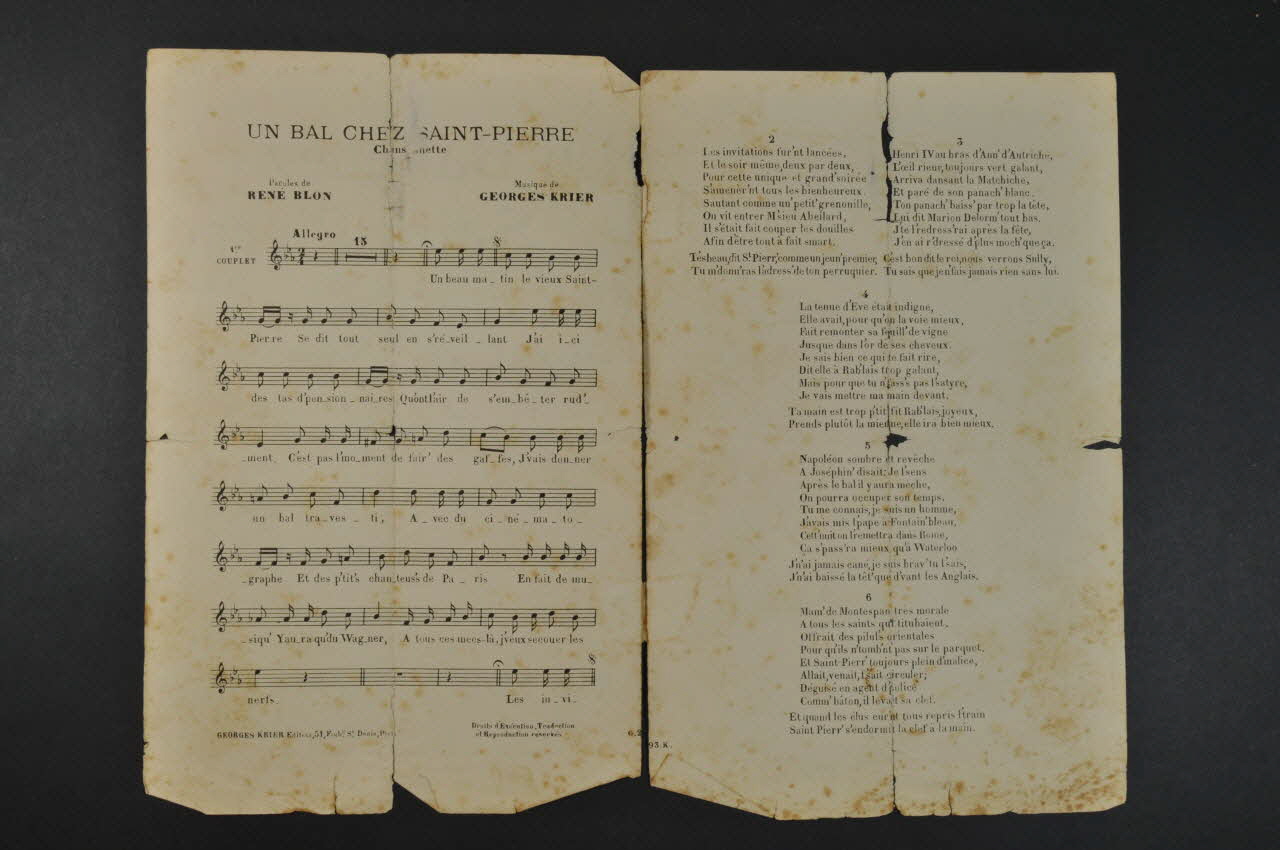 UN BAL CHEZ SAINT-PIERRE
Chansonnette
Paroles de
RENÉ BLON
Musique de
GEORGES KRIER
Allegro
13
1er
COUPLET
Un beau ma_tin le vieux Saint-
Pier_re Se dit tout seul en s'ré_veil_lant J'ai i_ci
des tas d'pen_sion_nai_res Qu'ont l'air de s'em_bê_ter rud'_
_ment. C'est pas l'mo_ment de fair' des gaf_fes, J'vais don_ner
un bal tra_ves_ti, A_vec du ci_né_ma_to_
_graphe Et des p'tit's chan_teus's de Pa_ris En fait de mu_
_siqu' Y'au_ra qu'du Wag_ner, A tous ces mecs-là, j'veux secouer les
nerfs. Les in_vi_
GEORGES KRIER Editeur, 51, Faubg St Denis, Paris
Droits d'Exécution, Traduction
et Reproduction réservés
G. 2
2
Les invitations fur'nt lancées,
Et le soir même, deux par deux,
Pour cette unique et grand' soirée
S'amenèr'nt tous les bienheureux.
Sautant comme un' petit' grenouille,
On vit entrer M'sieu Abeilard,
Il s'était fait couper les douilles
Afin d'être tout à fait smart.
T'es beau, dit St Pierr', comme un jeun' premier,
Tu m'donn'ras l'adress' de ton perruquier.
3
Henri IV au bras d'Ann' d'Autriche,
L'œil rieur, toujours vert galant,
Arriva dansant la Matchiche,
Et paré de son panach' blanc.
Ton panach' baiss' par trop la tête,
Lui dit Marion Delorm' tout bas.
J'te l'redress'rai après la fête,
J'en ai r'dressé d'plus moch' que ça.
C'est bon dit le roi, nous verrons Sully,
Tu sais que j'en fais jamais rien sans lui.
4
La tenue d'Eve était indigne,
Elle avait, pour qu'on la voie mieux,
Fait remonter sa feuill' de vigne
Jusque dans l'or de ses cheveux.
Je sais bien ce qui te fait rire,
Dit elle à Rab'lais trop galant,
Mais pour que tu n'fass's pas l'satyre,
Je vais mettre ma main devant.
Ta main est trop p'tit' fit Rab'lais joyeux,
Prends plutôt la mienne, elle ira bien mieux.
5
Napoléon sombre et revêche
A Joséphin' disait: Je l'sens
Après le bal il y aura mèche,
On pourra occuper son temps.
Tu me connais, je suis un homme,
J'avais mis l'pape à Fontain'bleau,
Cett' nuit on l'remettra dans Rome,
Ça s'pass'ra mieux qu'à Waterloo
J'n'ai jamais cané, je suis brav' tu l'sais,
J'n'ai baissé la têt' que d'vant les Anglais.
6
Mam' de Montespan très morale
A tous les saints qui titubaient,
Offrait des pilul's orientales
Pour qu'ils n'tomb'nt pas sur le parquet.
Et Saint-Pierr' toujours plein d'malice,
Allait, venait, f'sait circuler;
Déguisé en agent d'police
Comm' bâton, il levait sa clef.
Et quand les élus eur'nt tous repris l'train
Saint Pierr' s'endormit la clef à la main.
93. K.